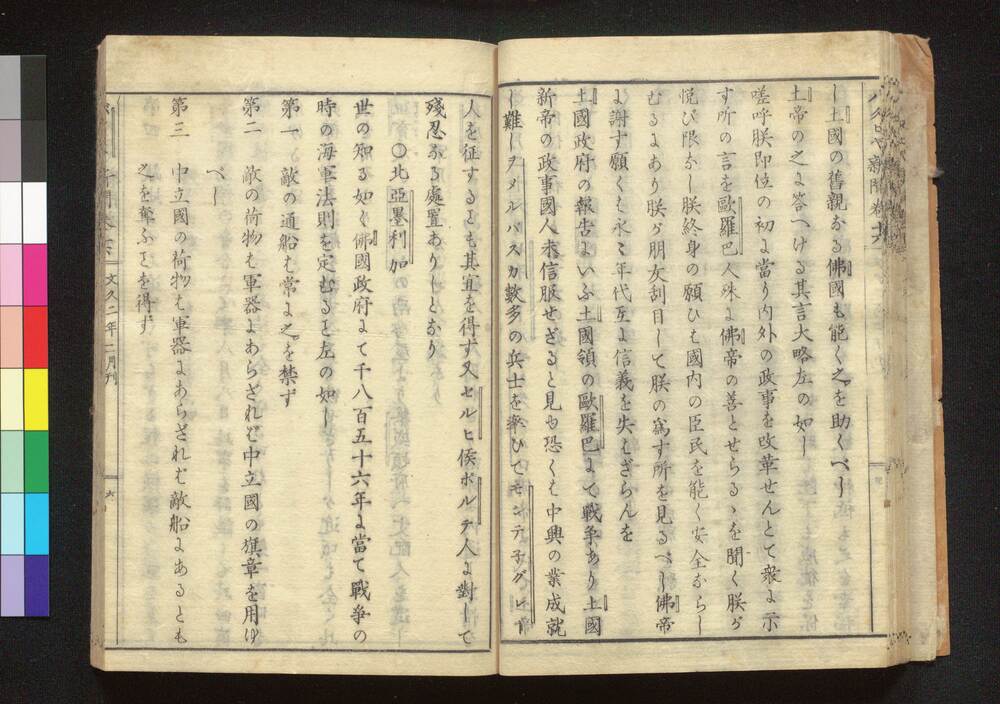 し土國の舊親なる佛國も能く之を助くべし
土帝の之よ答へける其言大略左の如し
嗟呼朕即位の初よ當り内外の政事を改革せんとて衆よ示
す所の言を歐羅巴人殊よ佛帝の善とせらるゝを聞く朕ゟ
悦び限なし朕終身の願ひも國内の臣民を能く安全ならし
むるよあり朕ゟ朋友刮目して朕の爲す所を見るべし佛帝
よ謝す願くも永々年代互よ信義を失もざらんを
土國政府の報告よいふ土國領の歐羅巴よて戰争あり土國
新帝の政事國人未信服せざると見ゆ恐くも中興の業成就
し難しヲメルパスカ數多の兵士を率ひてモンテ子グレー
人を征するとも其宜を得ず又セルヒ侯ボルテ人よ對して
殘忍なる處置ありしとなり
〇北亞墨利加
世の知る如く佛國政府よて千八百五十六年よ當て戰爭の
時の海軍法則を定むると左の如し
第一 敵の通船も常よ之を禁ず
第二 敵の荷物も軍器よあらざれば中立國の旗章を用ゆ
べし
第三 中立國の荷物も軍器よあらざれば敵船よあるとも
之を奪ふとを得ず
文久二年二月刊
六